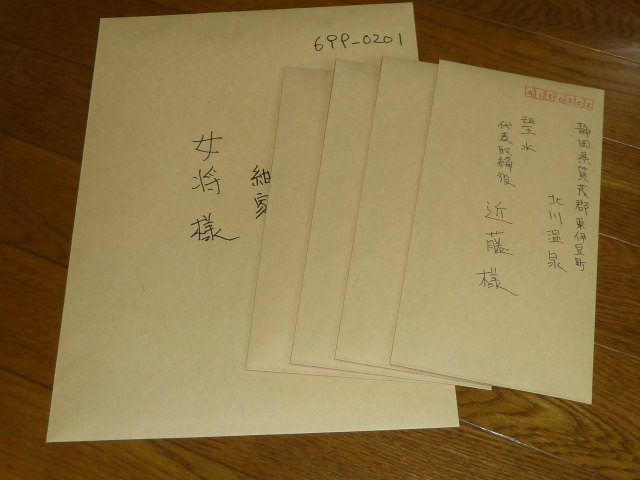 699-0201
紺家
女将様
4130302
静岡県賀茂郡東伊豆町
北川温泉
望水
代表取締役
近藤様